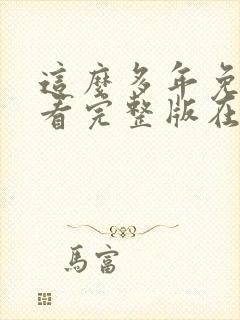 這麼多年免
看完整版在
馬富